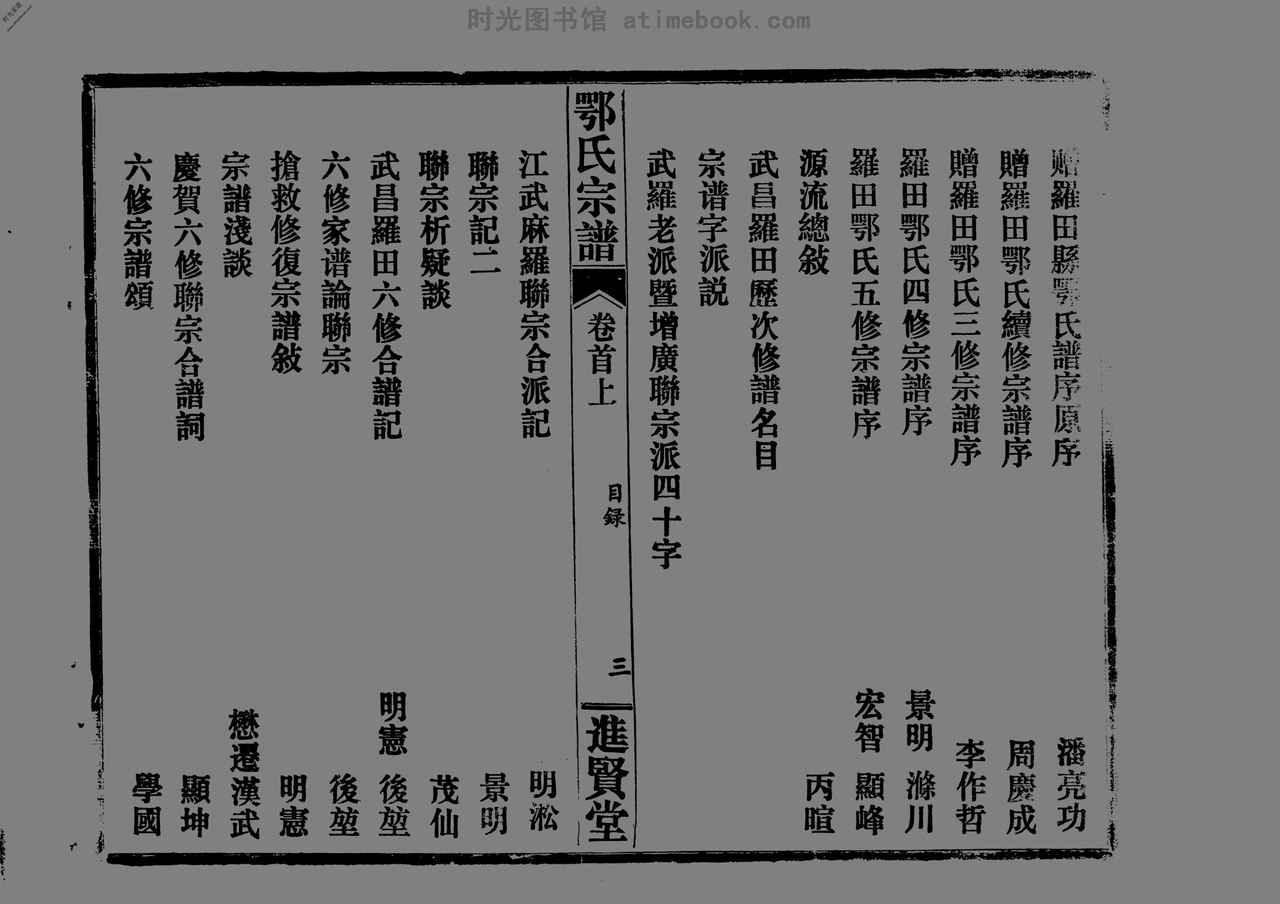 时光图书馆 atimebook.com
贈羅田縣鄂氏譜序原序 潘亮功
贈羅田鄂氏續修宗譜序 周慶成
贈羅田鄂氏三修宗譜序 李作哲
羅田鄂氏四修宗譜序 景明 滌川
羅田鄂氏五修宗譜序 宏智 顯峰
源流總敍 丙暄
武昌羅田歷次修譜名目
宗谱字派説
武羅老派暨增廣聯宗派四十字
鄂氏宗譜 卷首上 目録 三 進賢堂
江武麻羅聯宗合派記 明淞
聯宗記二 景明
聯宗析疑談 茂仙
武昌羅田六修合譜記 明憲 後堃
六修家谱論聯宗 後堃
搶救修復宗譜敍 明憲
宗譜淺談 懋遷漢武
慶賀六修聯宗合譜詞 顯坤
六修宗譜頌 學國